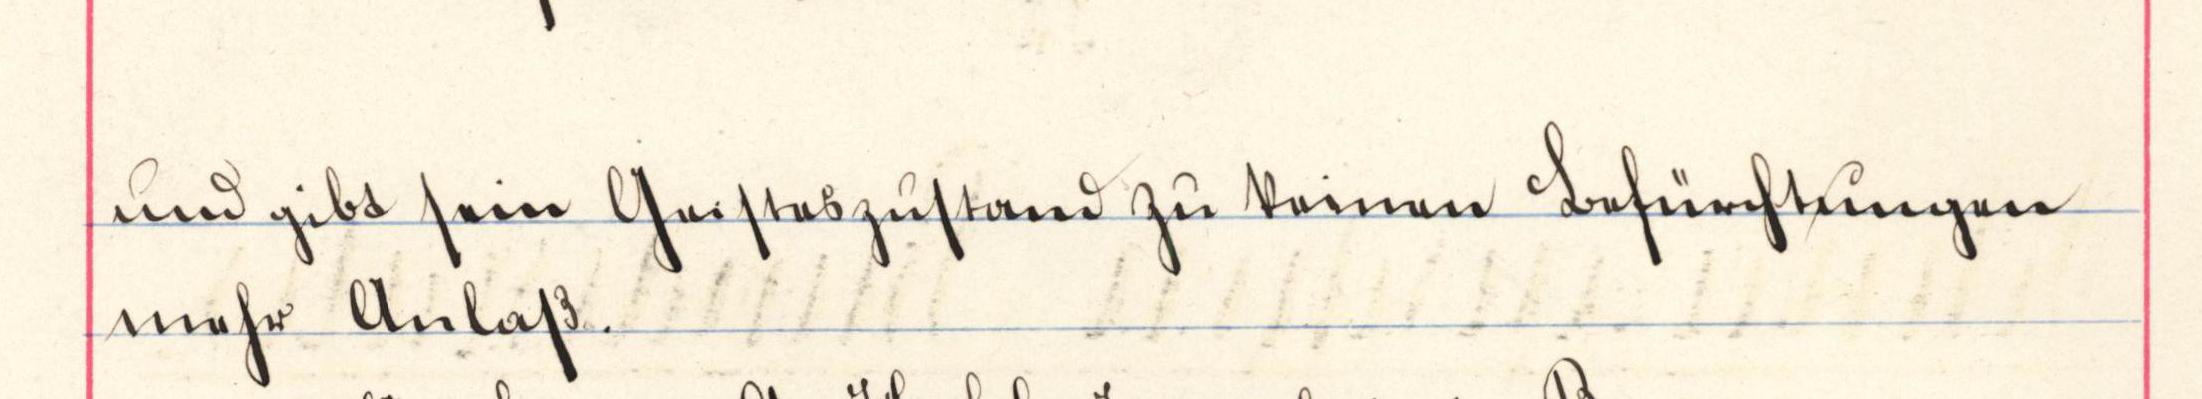 und gibt sein Geisteszustand zu keinen Befürchtungen
mehr Anlaß.